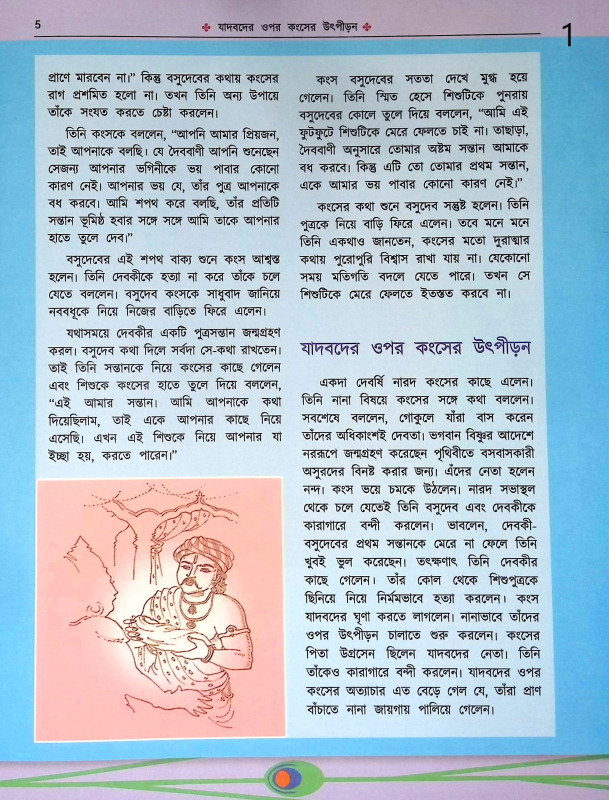 5
যাদবদের ওপর কংসের উৎপীড়ন
1
প্রাণে মারবেন না।” কিন্তু বসুদেবের কথায় কংসের
রাগ প্রশমিত হলো না। তখন তিনি অন্য উপায়ে
তাঁকে সংযত করতে চেষ্টা করলেন।
তিনি কংসকে বললেন, “আপনি আমার প্রিয়জন,
তাই আপনাকে বলছি। যে দৈববাণী আপনি শুনেছেন
সেজন্য আপনার ভগিনীকে ভয় পাবার কোনো
কারণ নেই। আপনার ভয় যে, তাঁর পুত্র আপনাকে
বধ করবে। আমি শপথ করে বলছি, তাঁর প্রতিটি
সন্তান ভূমিষ্ঠ হবার সঙ্গে সঙ্গে আমি তাকে আপনার
হাতে তুলে দেব।”
বসুদেবের এই শপথ বাক্য শুনে কংস আশ্বস্ত
হলেন। তিনি দেবকীকে হত্যা না করে তাঁকে চলে
যেতে বললেন। বসুদেব কংসকে সাধুবাদ জানিয়ে
নববধূকে নিয়ে নিজের বাড়িতে ফিরে এলেন।
যথাসময়ে দেবকীর একটি পুত্রসন্তান জন্মগ্রহণ
করল। বসুদেব কথা দিলে সর্বদা সে-কথা রাখতেন।
তাই তিনি সন্তানকে নিয়ে কংসের কাছে গেলেন
এবং শিশুকে কংসের হাতে তুলে দিয়ে বললেন,
“এই আমার সন্তান। আমি আপনাকে কথা
দিয়েছিলাম, তাই একে আপনার কাছে নিয়ে
এসেছি। এখন এই শিশুকে নিয়ে আপনার যা
ইচ্ছা হয়, করতে পারেন।”
কংস বসুদেবের সততা দেখে মুগ্ধ হয়ে
গেলেন। তিনি স্মিত হেসে শিশুটিকে পুনরায়
বসুদেবের কোলে তুলে দিয়ে বললেন, “আমি এই
ফুটফুটে শিশুটিকে মেরে ফেলতে চাই না। তাছাড়া,
দৈববাণী অনুসারে তোমার অষ্টম সন্তান আমাকে
বধ করবে। কিন্তু এটি তো তোমার প্রথম সন্তান,
একে আমার ভয় পাবার কোনো কারণ নেই।”
কংসের কথা শুনে বসুদেব সন্তুষ্ট হলেন। তিনি
পুত্রকে নিয়ে বাড়ি ফিরে এলেন। তবে মনে মনে
তিনি একথাও জানতেন, কংসের মতো দুরাত্মার
কথায় পুরোপুরি বিশ্বাস রাখা যায় না। যেকোনো
সময় মতিগতি বদলে যেতে পারে। তখন সে
শিশুটিকে মেরে ফেলতে ইতস্তত করবে না।
যাদবদের ওপর কংসের উৎপীড়ন
একদা দেবর্ষি নারদ কংসের কাছে এলেন।
তিনি নানা বিষয়ে কংসের সঙ্গে কথা বললেন।
সবশেষে বললেন, গোকুলে যাঁরা বাস করেন
তাঁদের অধিকাংশই দেবতা। ভগবান বিষ্ণুর আদেশে
নররূপে জন্মগ্রহণ করেছেন পৃথিবীতে বসবাসকারী
অসুরদের বিনষ্ট করার জন্য। এঁদের নেতা হলেন
নন্দ। কংস ভয়ে চমকে উঠলেন। নারদ সভাস্থল
থেকে চলে যেতেই তিনি বসুদেব এবং দেবকীকে
কারাগারে বন্দী করলেন। ভাবলেন, দেবকী-
বসুদেবের প্রথম সন্তানকে মেরে না ফেলে তিনি
খুবই ভুল করেছেন। তৎক্ষণাৎ তিনি দেবকীর
কাছে গেলেন। তাঁর কোল থেকে শিশুপুত্রকে
ছিনিয়ে নিয়ে নির্মমভাবে হত্যা করলেন। কংস
যাদবদের ঘৃণা করতে লাগলেন। নানাভাবে তাঁদের
ওপর উৎপীড়ন চালাতে শুরু করলেন। কংসের
পিতা উগ্রসেন ছিলেন যাদবদের নেতা। তিনি
তাঁকেও কারাগারে বন্দী করলেন। যাদবদের ওপর
কংসের অত্যাচার এত বেড়ে গেল যে, তাঁরা প্রাণ
বাঁচাতে নানা জায়গায় পালিয়ে গেলেন।